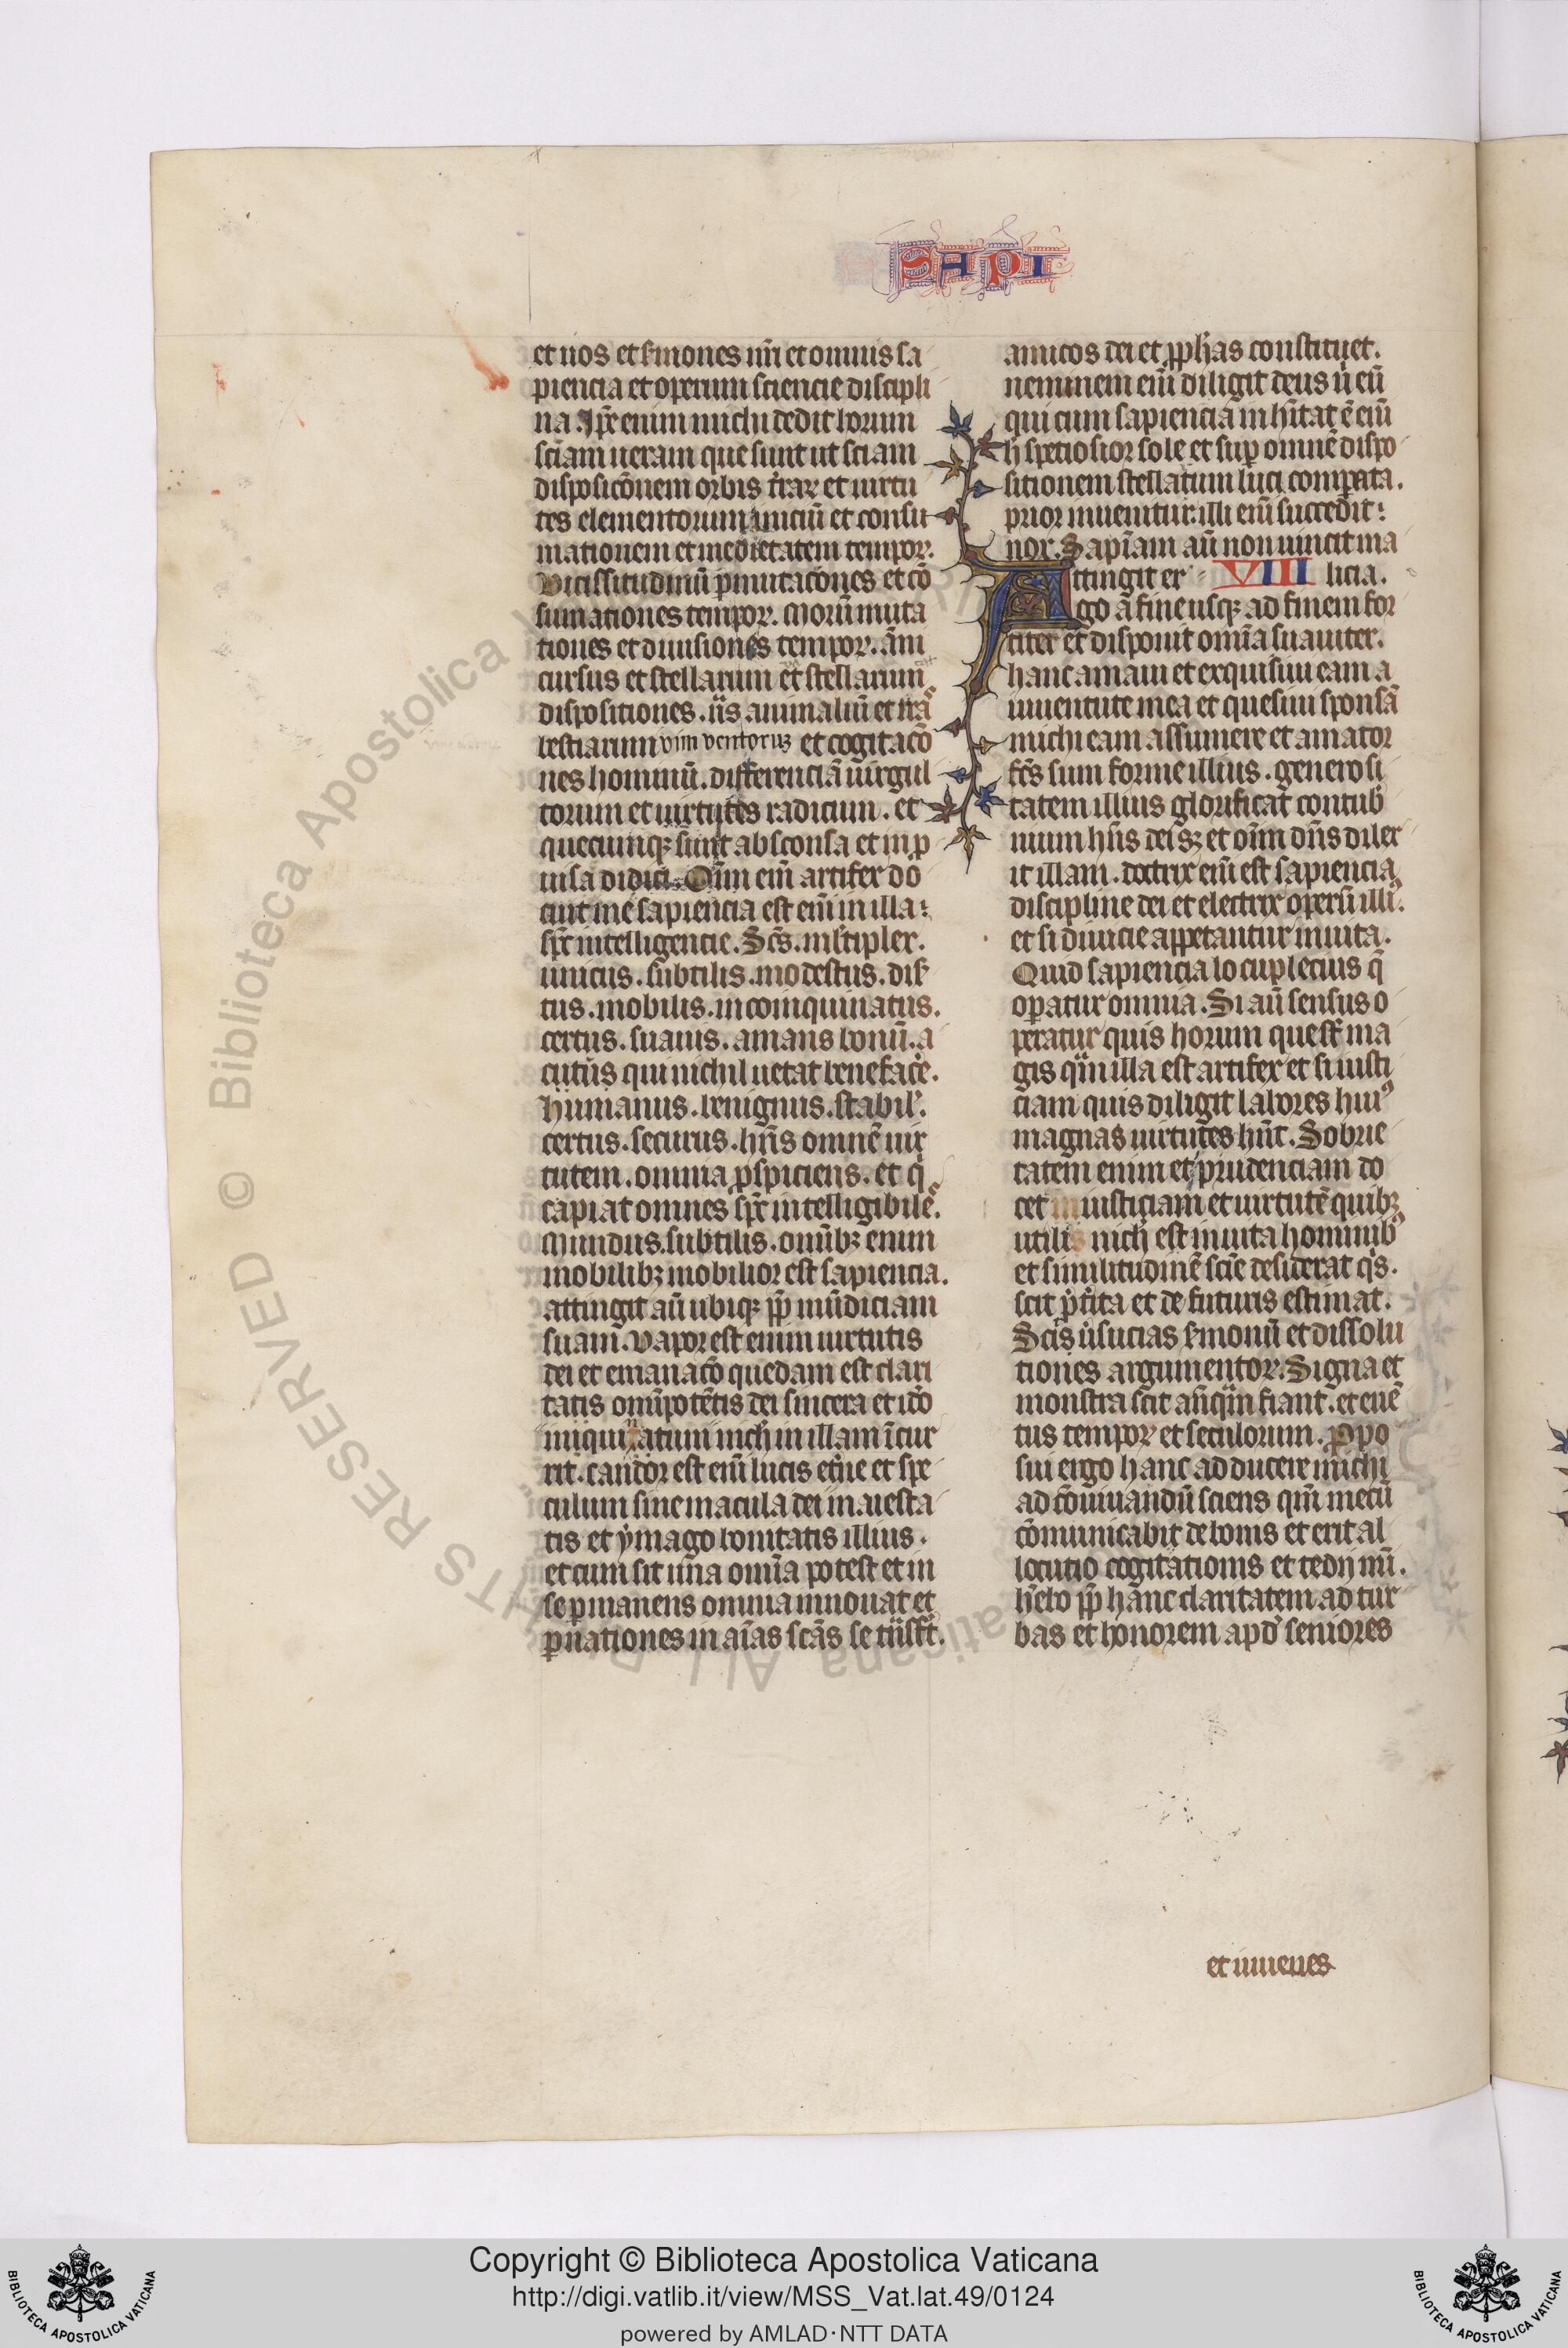 SAPI
et nos et s̄mones nr̄i et omnis sa
piencia et operum sciencie discipli
na Ip̄e enim michi dedit horum
sc̄iam ueram que sunt ut sciam
disposic̄onem orbis t̄rarꝝ et uirtu
tes elementorum iniciū et consu
mationem et medietatem temporꝝ.
Vicissitudinū ꝑmutac̄ones et cō
sumationes temporꝝ. Morū muta
tiones et diuisiones temporꝝ. ānni
cursus et stellarum et stellarum
dispositiones. n̄as animaliū et iras
bestiarum vim ventorum et cogitac̄o
nes hominū. differenciā uirgul
torum et uirtutes radicum. et
quecumqꝫ sunt absconsa et inp
uisa didici. Om̄im enī artifex do
cuit me sapiencia est enī in illa:
sp̄c intelligencie. Sc̄s. ml̄tiplex.
unicus. subtilis. modestus. dis̄
tus. mobilis. incoinquinatus.
certus. suauis. amans bonū. a
cutus qui nichil uetat benefac̄e.
humanus. benignus. stabil̄.
certus. securus. hn̄s omnē uir
tutem. omnia ꝓspiciens. et q̄
capiat omnes sp̄c intelligibiles.
Mundus. subtilis. omībꝫ enim
mobilibꝫ mobilior est sapiencia.
attingit aū ubiqꝫ ꝓp̄ mūdiciam
suam. Vapor est enim uirtutis
dei et emanac̄o quedam est clari
tatis omīpotētis dei sincera et ido
iniquinatum nich̄ in illam īcur
rit. candor est enī lucis et̄ne et spe
culum sine macula dei maiesta
tis et ymago bonitatis illius.
et cum sit una omīa potest et in
se ꝑmanens omnia innouat et
ꝑ nationes in aīas sc̄as se trāsft̄.
amicos dei et ꝓph̄as constituet.
neminem enī diligit deus n̄ eū
qui cum sapiencia inhītat ē enī
h̄ speciosior sole et suꝑ omnē dispo
sitionem stellarum luci compata.
prior inuenitur. illi enī succedit:
nox. Sapīam aū non uincit ma
licia.
VIII
Attingit er
go a fine usqꝫ ad finem for
titer et disponit omīa suauiter.
hanc amaui et exquisiui eam a
iuuentute mea et quesiui sponsā
michi eam assumere et amator
fc̄s sum forme illius. generosi
tatem illius glorificat contub̄
nium hn̄s dei sꝫ et oīm dn̄s dilex
it illam. doctrix enī est sapiencia
discipline dei et electrix operū illiꝰ.
et si diuicie appetantur in uita.
Quid sapiencia locuplecius q̄
oꝑatur omnia. Si aū sensus o
peratur quis horum que st̄ ma
gis qm̄ illa est artifex et si iusti
ciam quis diligit labores huiꝰ
magnas uirtutes hn̄t. Sobrie
tatem enim et prudenciam do
cet iusticiam et uirtutē quibꝫ
utilis nich̄ est in uita hominibꝰ
et similitudinē scīe desiderat qͥs.
scit p̄t̄ita et de futuris estimat.
Scit ūsucias s̄monū et dissolu
tiones argumentorꝝ. Signa et
monstra scit anqm̄ fiant. et euē
tus temporꝝ et seculorum. Propo
sui ergo hanc adducere michi
ad cōuiuandū sciens qm̄ mecū
cōmunicabit de bonis et erit al
locutio cogitationis et tedij mī.
h̄ebo ꝓp̄ hanc claritatem ad tur
bas et honorem apd̓ seniores
et iuuenes
© Biblioteca Apostolica Vaticana ALL RIGHTS RESERVED
Copyright © Biblioteca Apostolica Vaticana
http://digi.vatlib.it/view/MSS_Vat.lat.49/0124
powered by AMLAD·NTT DATA
BIBLIOTECA APOSTOLICA VATICANA
BIBLIOTECA APOSTOLICA VATICANA